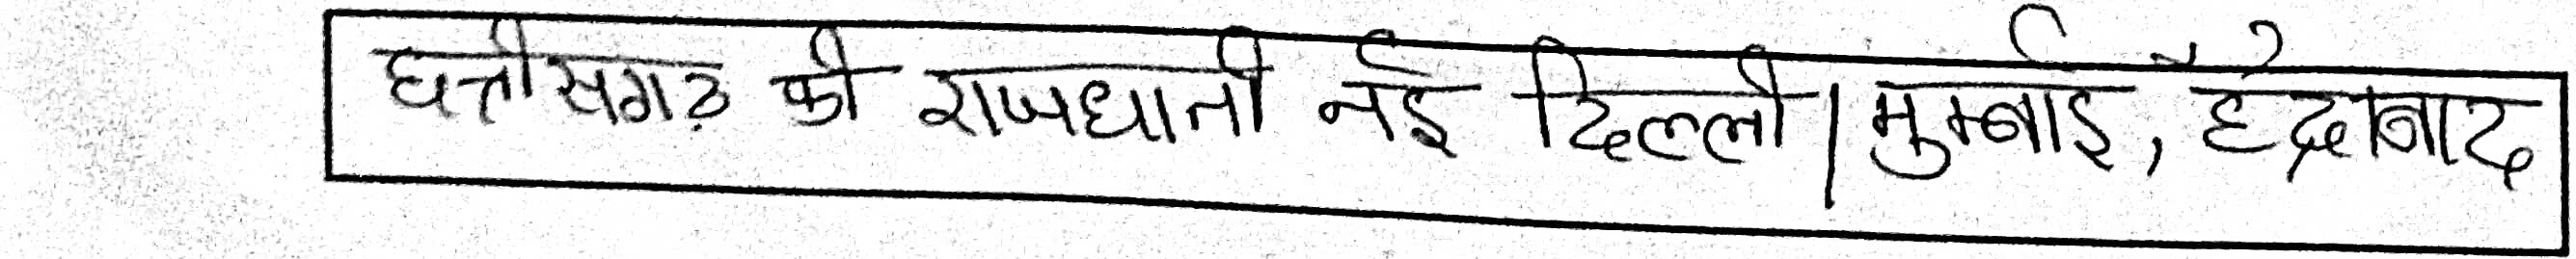 छत्तीसगढ़ की राजधानी नई दिल्ली | मुम्बई, हैद्राबाद